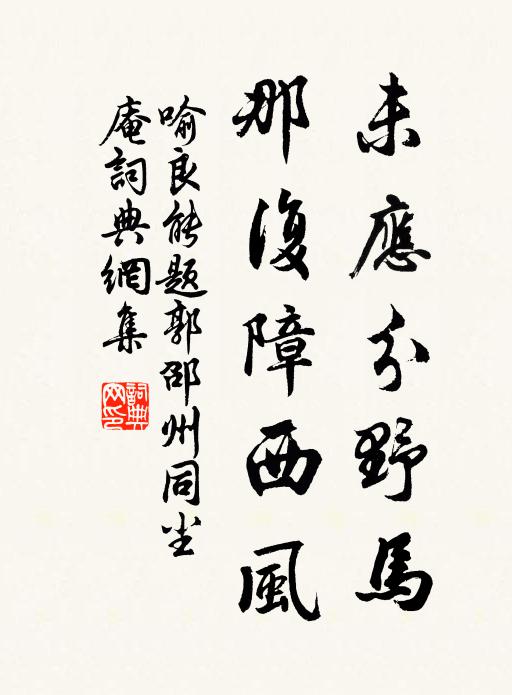 未應分野馬
那復障西風
喻良能題郭邵州同尘
庵詞典網集
詞典网印